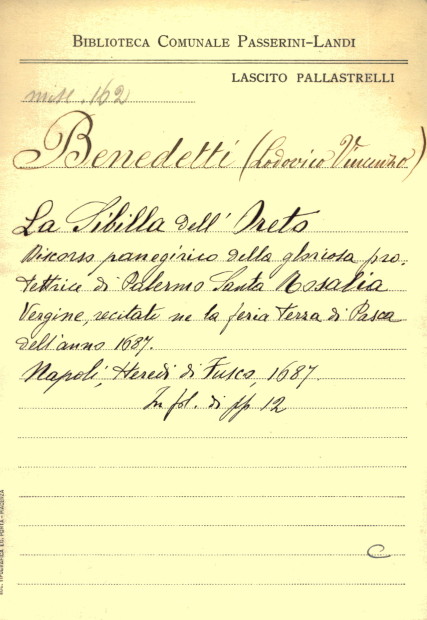 BIBLIOTECA COMUNALE PASSERINI-LANDI
LASCITO PALLASTRELLI
misc. 162
Benedetti (Lodovico Vincenzo)
La Sibilla dell' Oreto
Discorso panegirico della gloriosa pro-
tettrice di Palermo Santa Rosalia
Vergine, recitato ne la feria terza di Pasca
dell'anno 1687.
Napoli, Heredi di Fusco, 1687.
In fol. di pp 12
C